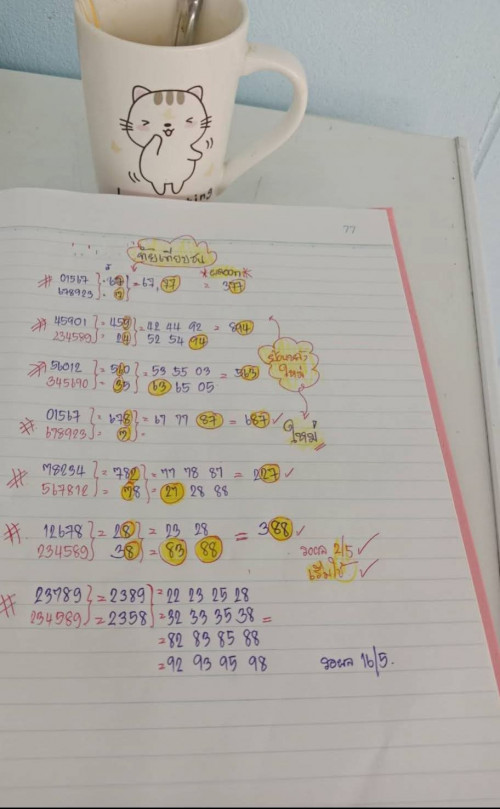 77
01567 } = 67 } = 67, 77 = 377
678923 } = 7
45901 } = 459 } = 42 44 92 = 894
234589 } = 24 } 52 54 94
56012 } = 560 } = 53 55 03 = 563
345690 } = 35 } 63 65 05
ใหม่
01567 } = 678 } = 67 77 87 = 687 ✓
678923 } = 7 } =
ใหม่
78234 } = 782 } = 77 78 87 = 227 ✓
567812 } = 78 } = 27 28 88
12678 } = 28 } = 23 28 = 388 ✓
234589 } 38 } = 83 88
รอผล 2/5 ✓
เริ่มใช้ ✓
23789 } = 2389 } = 22 23 25 28
234589 } = 2358 } = 32 33 35 38 =
= 82 83 85 88
= 92 93 95 98 รอผล 16/5.